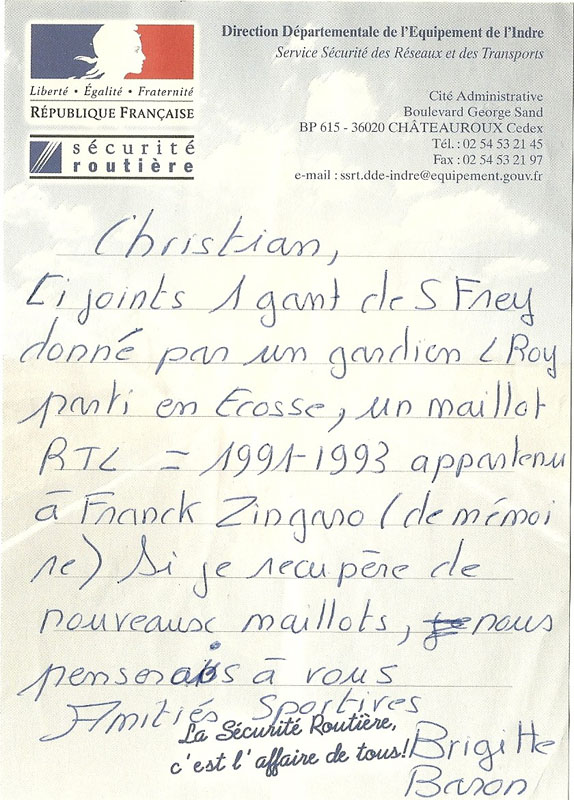 Direction Départementale de l'Equipement de l'Indre
Service Sécurité des Réseaux et des Transports
Liberté • Égalité • Fraternité
RÉPUBLIQUE FRANÇAISE
sécurité
routière
Cité Administrative
Boulevard George Sand
BP 615 - 36020 CHÂTEAUROUX Cedex
Tél. : 02 54 53 21 45
Fax : 02 54 53 21 97
e-mail : ssrt.dde-indre@equipement.gouv.fr
Christian,
Ci joints 1 gant de S Frey
donné par un gardien L Roy
parti en Ecosse, un maillot
RTL = 1991-1993 appartenu
à Franck Zingaro (de mémoi
re) Si je recupère de
nouveaux maillots, je nous
penserons à vous
Amitiés Sportives
La Sécurité Routière,
c'est l'affaire de tous!
Brigitte
Baron